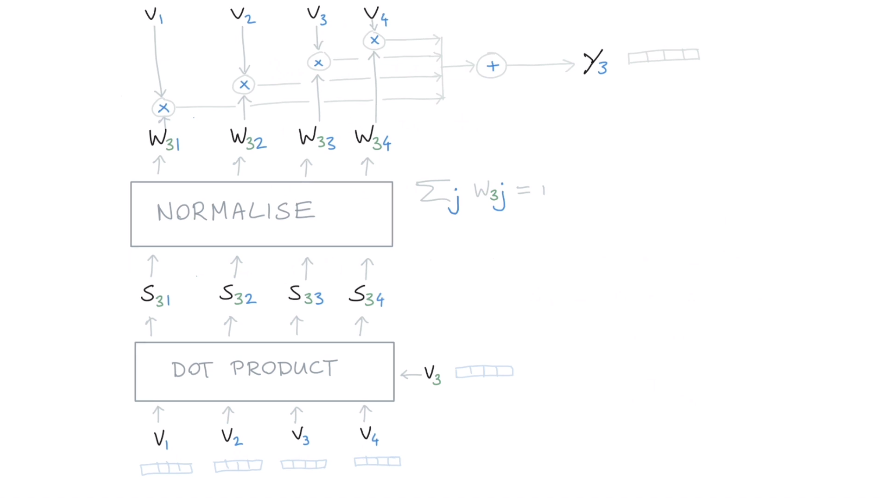 V1 V2 V3 V4
x x x x + Y3
W31 W32 W33 W34
NORMALISE
∑j W3j = 1
S31 S32 S33 S34
DOT PRODUCT
V3
V1 V2 V3 V4